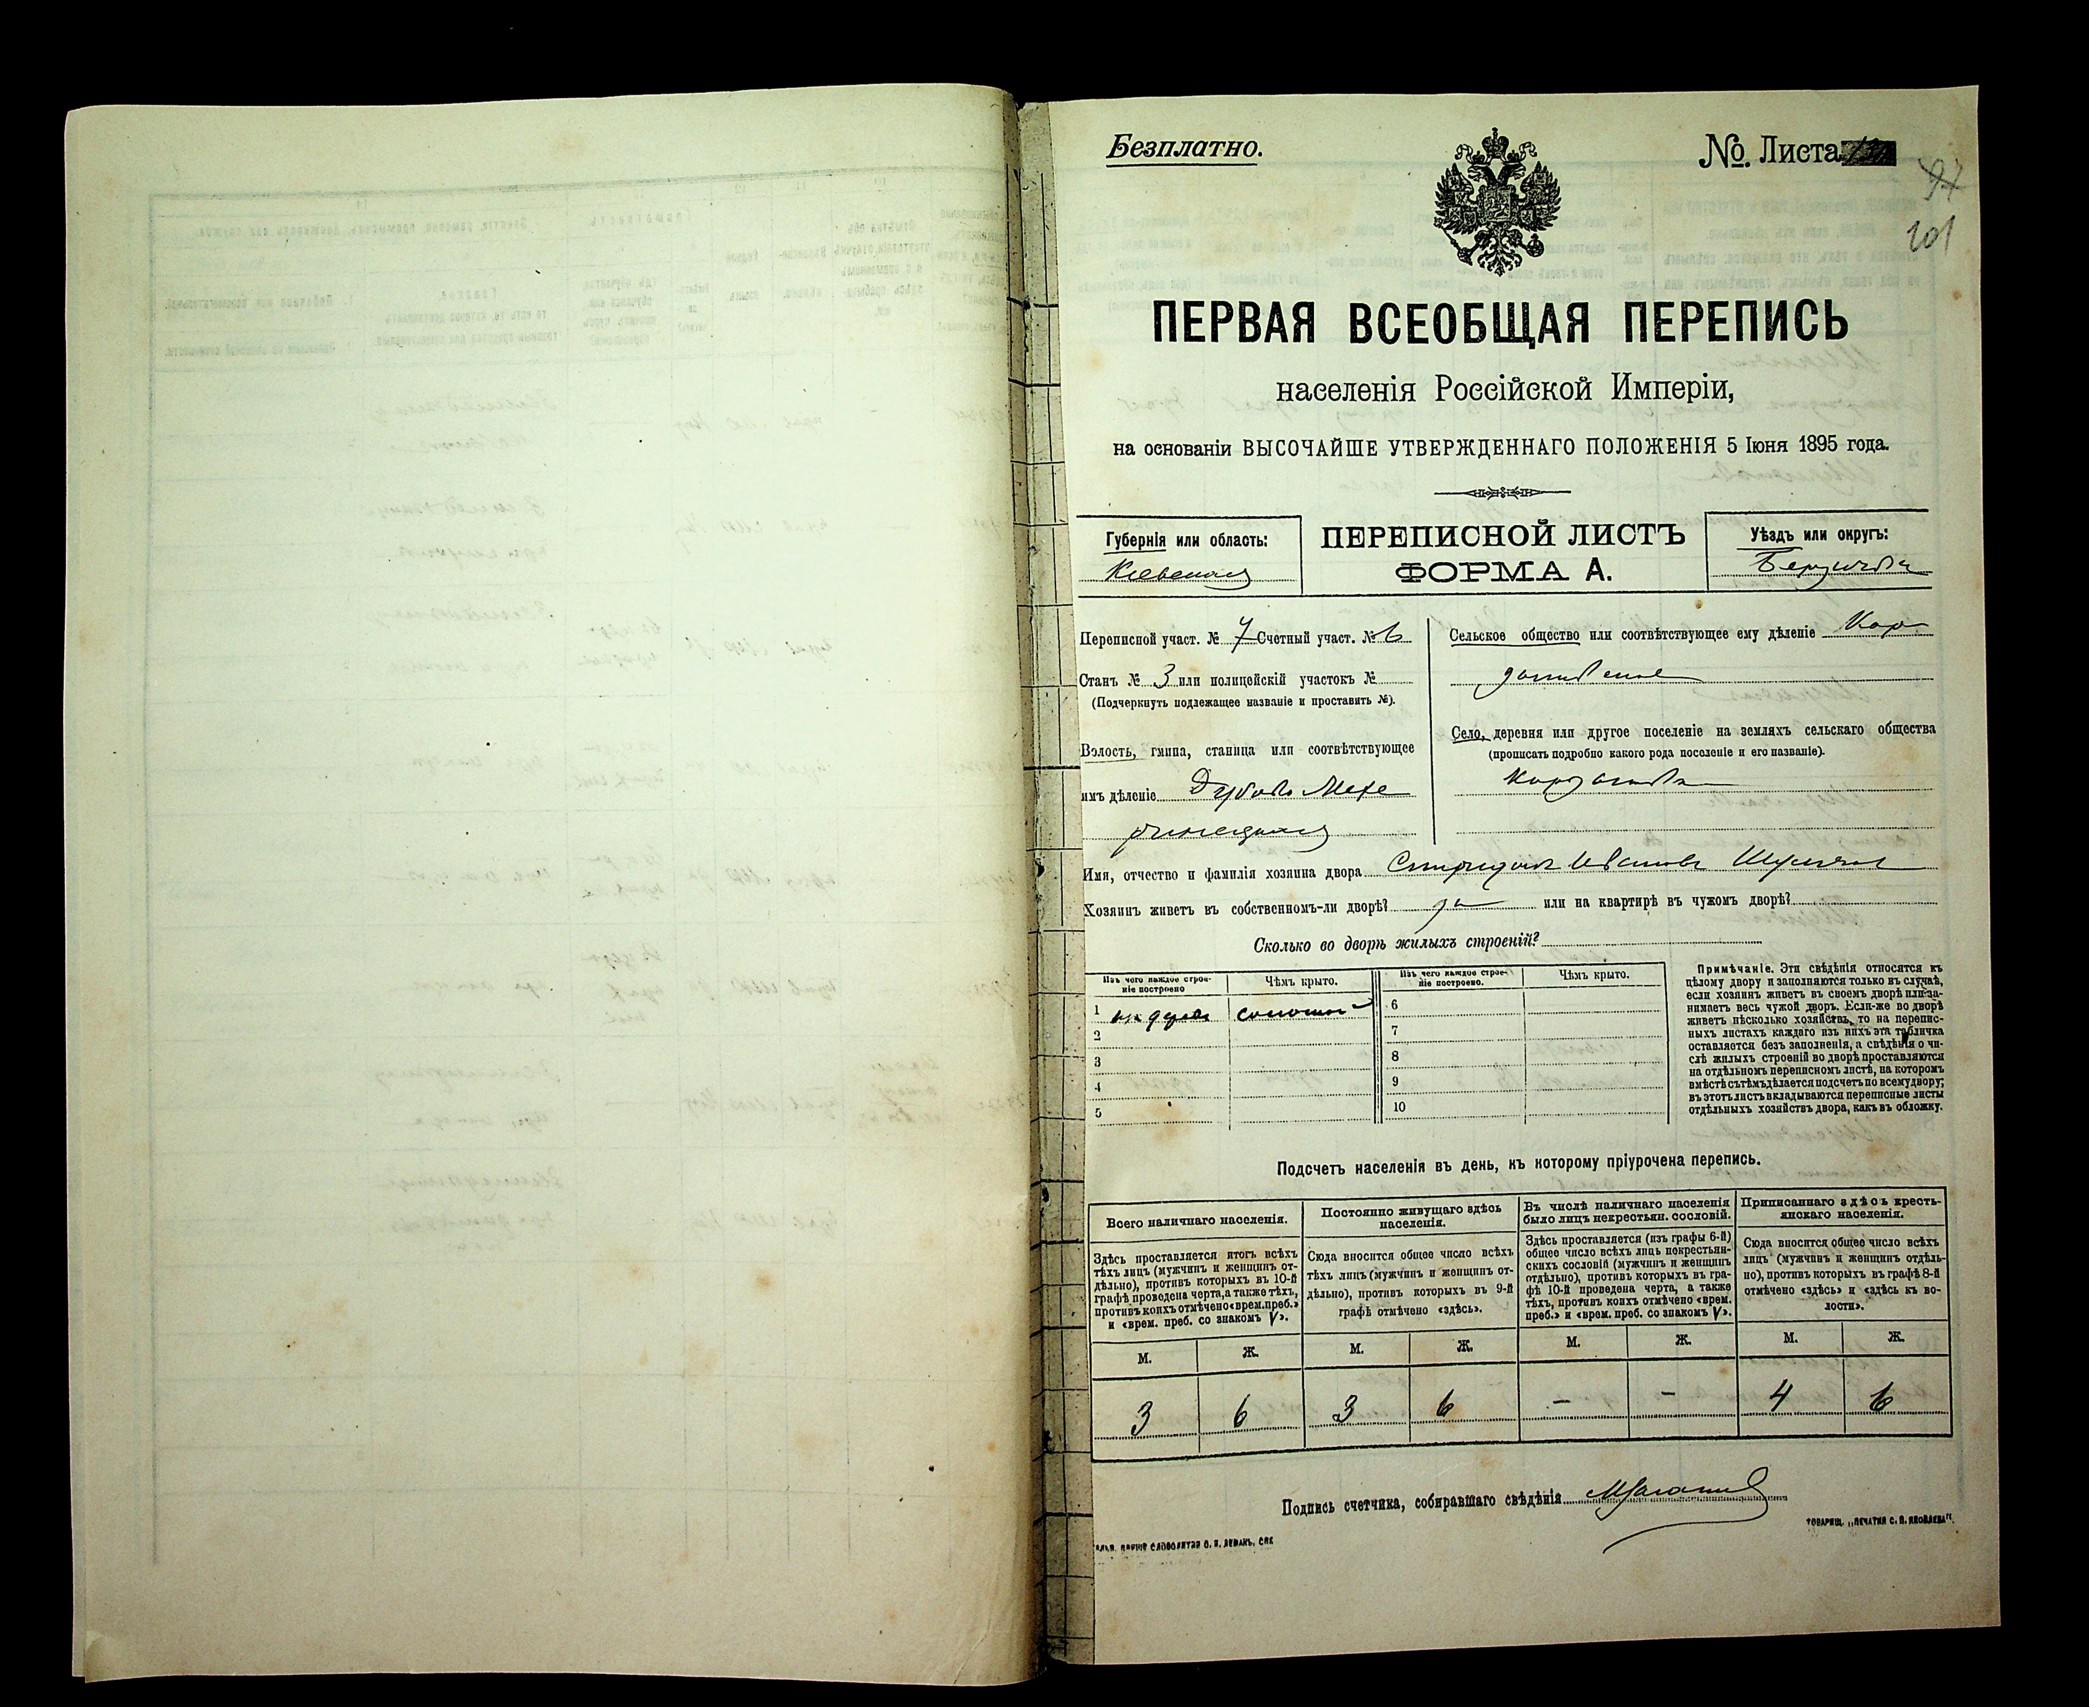 Безплатно.
№. Листа
97
101
ПЕРВАЯ ВСЕОБЩАЯ ПЕРЕПИСЬ
населенія Россійской Имперіи,
на основаніи ВЫСОЧАЙШЕ УТВЕРЖДЕННАГО ПОЛОЖЕНІЯ 5 Іюня 1895 года.
Губернія или область:
Кіевская
ПЕРЕПИСНОЙ ЛИСТЪ
ФОРМА А.
Уѣздъ или округъ:
Бердичевск
Переписной участ. № 7 Счетный участ. № 6
Станъ № 3 или полицейскій участокъ №
(Подчеркнуть подлежащее названіе и проставить №).
Волость, гмина, станица или соотвѣтствующее
имъ дѣленіе Дубово Мехе
ринецкая
Сельское общество или соотвѣтствующее ему дѣленіе Кор
Село, деревня или другое поселеніе на земляхъ сельскаго общества
(прописать подробно какого рода поселеніе и его названіе).
Имя, отчество и фамилія хозяина двора Спиридонъ Ивановъ
Хозяинъ живетъ въ собственномъ-ли дворѣ? да или на квартирѣ въ чужомъ дворѣ?
Сколько во дворѣ жилыхъ строеній?
Изъ чего каждое строеніе построено
Чѣмъ крыто.
Изъ чего каждое строеніе построено.
Чѣмъ крыто.
1 изъ дерева соломой
2
3
4
5
6
7
8
9
10
Примѣчаніе. Эти свѣдѣнія относятся къ
цѣлому двору и заполняются только въ случаѣ,
если хозяинъ живетъ въ своемъ дворѣ или за-
нимаетъ весь чужой дворъ. Если-же во дворѣ
живетъ нѣсколько хозяйствъ, то на перепис-
ныхъ листахъ каждаго изъ нихъ эта табличка
оставляется безъ заполненія, а свѣдѣнія о чи-
слѣ жилыхъ строеній во дворѣ проставляются
на отдѣльномъ переписномъ листѣ, на которомъ
вмѣстѣ съ тѣмъ дѣлается подсчетъ по всему двору;
въ этотъ листъ вкладываются переписные листы
отдѣльныхъ хозяйствъ двора, какъ въ обложку.
Подсчетъ населенія въ день, къ которому пріурочена перепись.
Всего наличнаго населенія.
Здѣсь проставляется итогъ всѣхъ
тѣхъ лицъ (мужчинъ и женщинъ от-
дѣльно), противъ которыхъ въ 10-й
графѣ проведена черта, а также тѣхъ,
противъ коихъ отмѣчено «врем. преб.»
и «врем. преб. со знакомъ V».
Постоянно живущаго здѣсь
населенія.
Сюда вносится общее число всѣхъ
тѣхъ лицъ (мужчинъ и женщинъ от-
дѣльно), противъ которыхъ въ 9-й
графѣ отмѣчено «здѣсь».
Въ числѣ наличнаго населенія
было лицъ некрестьян. сословій.
Здѣсь проставляется (изъ графы 6-й)
общее число всѣхъ лицъ некрестьян-
скихъ сословій (мужчинъ и женщинъ
отдѣльно), противъ которыхъ въ гра-
фѣ 10-й проведена черта, а также
тѣхъ, противъ коихъ отмѣчено «врем.
преб.» и «врем. преб. со знакомъ V».
Приписаннаго здѣсь кресть-
янскаго населенія.
Сюда вносится общее число всѣхъ
лицъ (мужчинъ и женщинъ отдѣль-
но), противъ которыхъ въ графѣ 8-й
отмѣчено «здѣсь» и «здѣсь къ во-
лости».
М. Ж. М. Ж. М. Ж. М. Ж.
3 6 3 6 — — 4 6
Подпись счетчика, собиравшаго свѣдѣнія
ТОВАРИЩ. „ПЕЧАТНЯ С. П. ЯКОВЛЕВА".
СЛОВОЛИТНИ О. И. ЛЕМАНЪ, СПБ